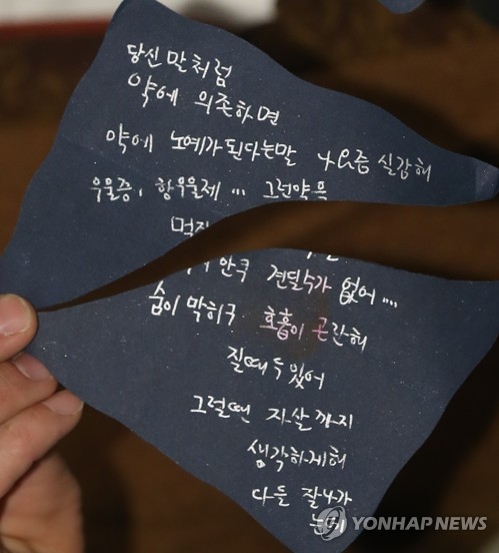 당신 말처럼
약에 의존하면
약에 노예가 된다는말 나 요즘 실감해
우울증, 항우울제 ... 그런약을
먹지
안쿠 견딜수가 없어 ....
숨이 막히구 호흡이 곤란해
질때두 있어
그럴땐 자살까지
생각하게해
다들 잘나가
는데
YONHAP NEWS